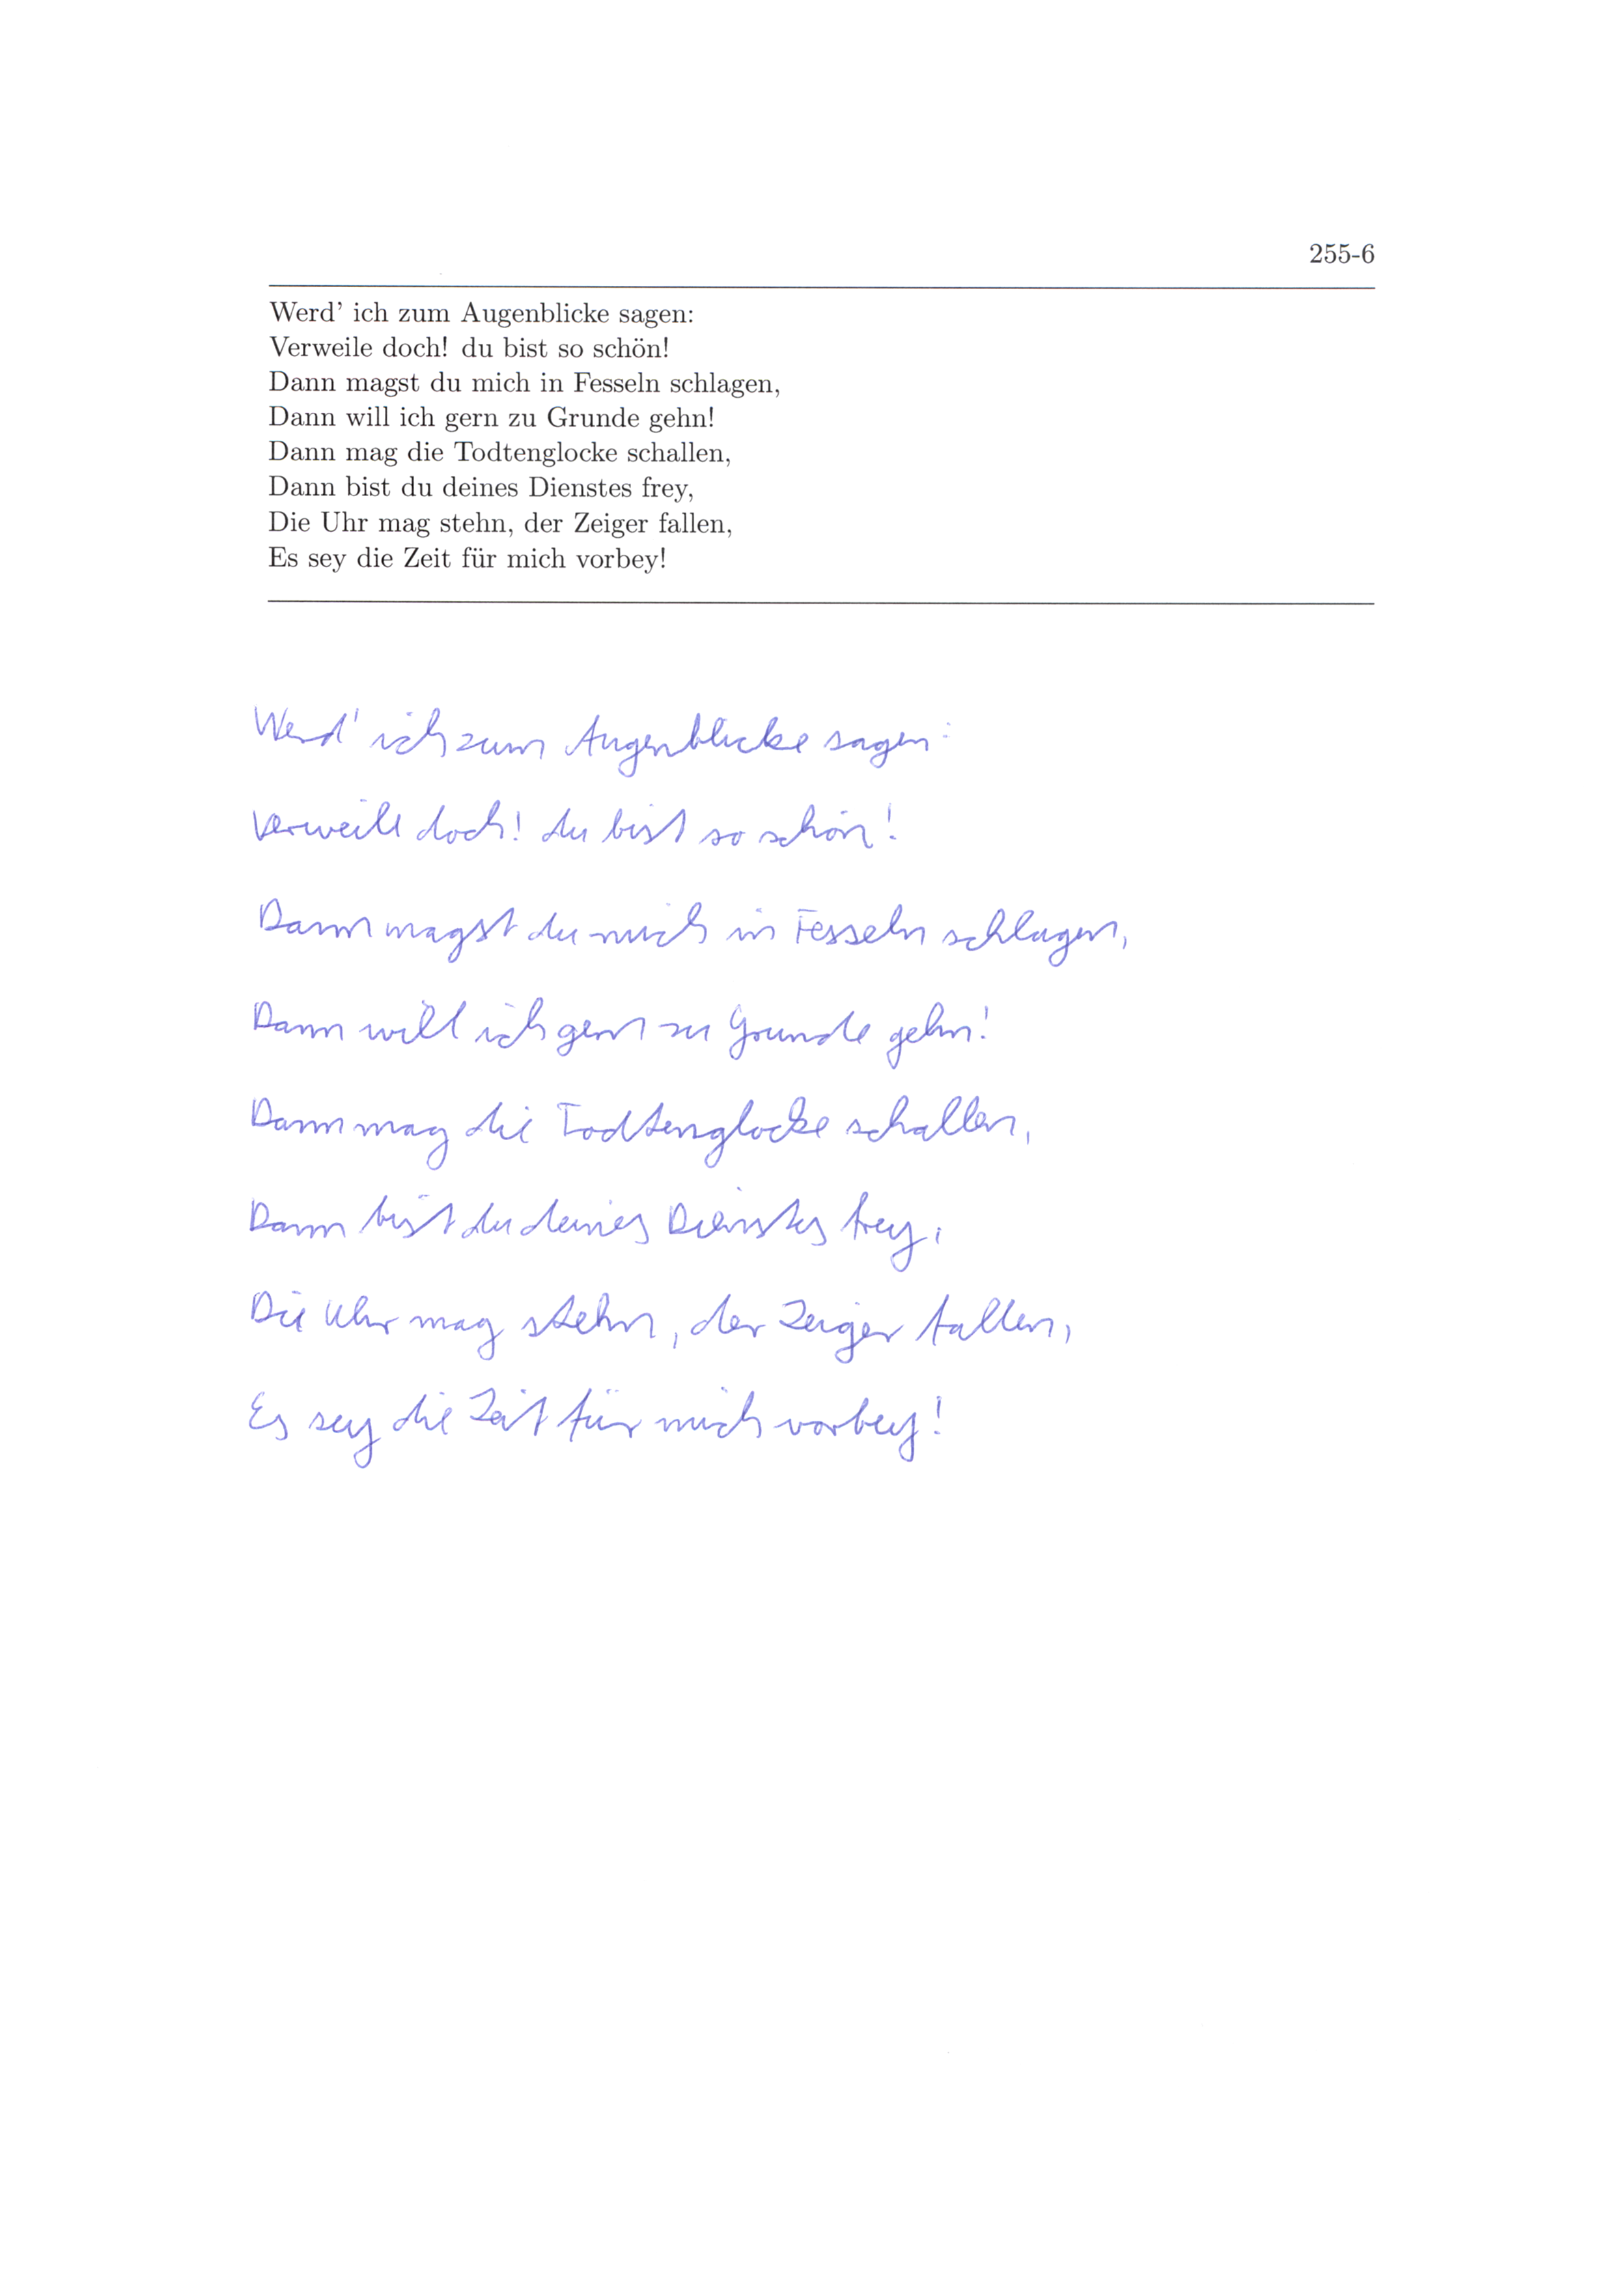 255-6
Werd' ich zum Augenblicke sagen:
Verweile doch! du bist so schön!
Dann magst du mich in Fesseln schlagen,
Dann will ich gern zu Grunde gehn!
Dann mag die Todtenglocke schallen,
Dann bist du deines Dienstes frey,
Die Uhr mag stehn, der Zeiger fallen,
Es sey die Zeit für mich vorbey!
Werd' ich zum Augenblicke sagen:
Verweile doch! du bist so schön!
Dann magst du mich in Fesseln schlagen,
Dann will ich gern zu Grunde gehn!
Dann mag die Todtenglocke schallen,
Dann bist du deines Dienstes frey,
Die Uhr mag stehn, der Zeiger fallen,
Es sey die Zeit für mich vorbey!